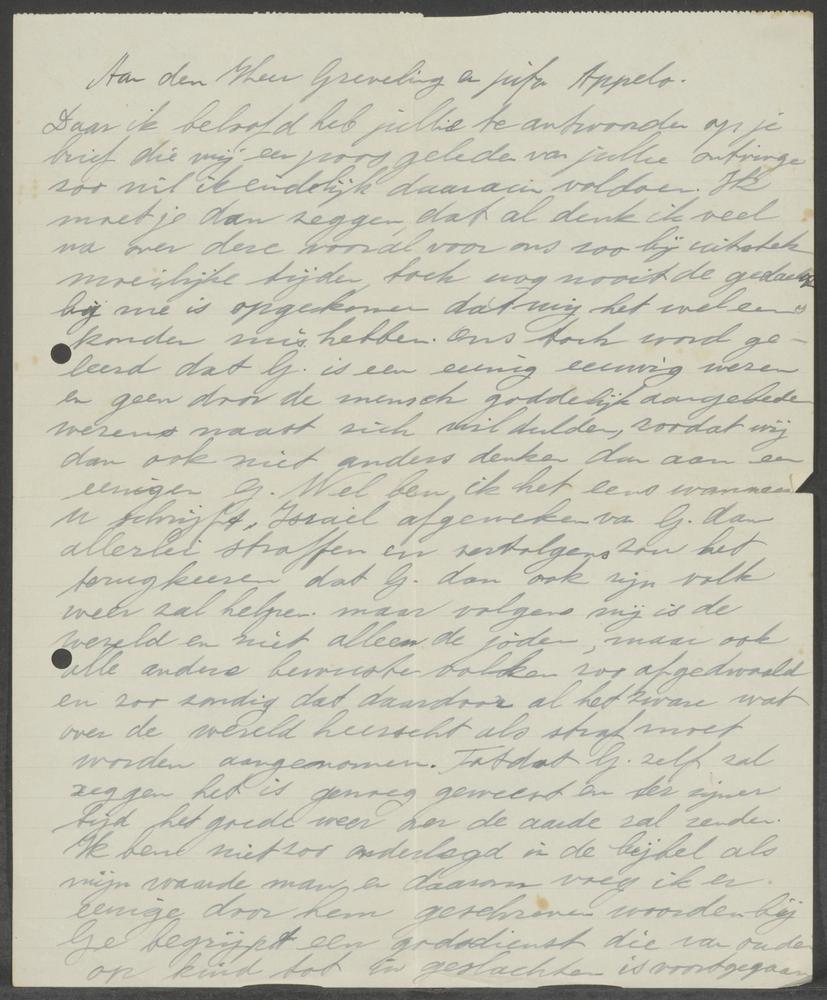 Aan den Heer Greveling en jufr Appelo.
Daar ik beloofd heb jullie te antwoorden op je
brief die mij een poos geleden van jullie ontvinge
zoo wil ik eindelijk daaraan voldoen. Ik
moet je dan zeggen, dat al denk ik veel
na over deze vooral voor ons zoo bij uitstek
moeilijke tijden, toch nog nooit de gedachte
bij me is opgekomen dat wij het wel eens
konden mis hebben. Ons toch word ge-
leerd dat G. is een eenig eeuwig wezen
en geen door de mensch goddelijk aangebeden
wezens naast zich wil dulden, zoodat wij
dan ook niet anders denken dan aan een
eenigen G. Wel ben ik het eens wanneer
U schrijft, Israël afgeweken van G. dan
allerlei straffen en vervolgens zou het
terugkeeren dat G. dan ook zijn volk
weer zal helpen. maar volgens mij is de
wereld en niet alleen de joden, maar ook
alle andere bewuste volken zoo afgedwaald
en zoo zondig dat daardoor al het zware wat
over de wereld heerscht als straf moet
worden aangenomen. Totdat G. zelf zal
zeggen het is genoeg geweest en ter zijner
tijd het goede weer over de aarde zal zenden.
Ik ben niet zoo onderlegd in de bijbel als
mijn waarde man en daarom voeg ik er
eenige door hem geschreven woorden bij
Ge begrijpt een godsdienst die van ouder
op kind tot in geslachten is voortgegaan